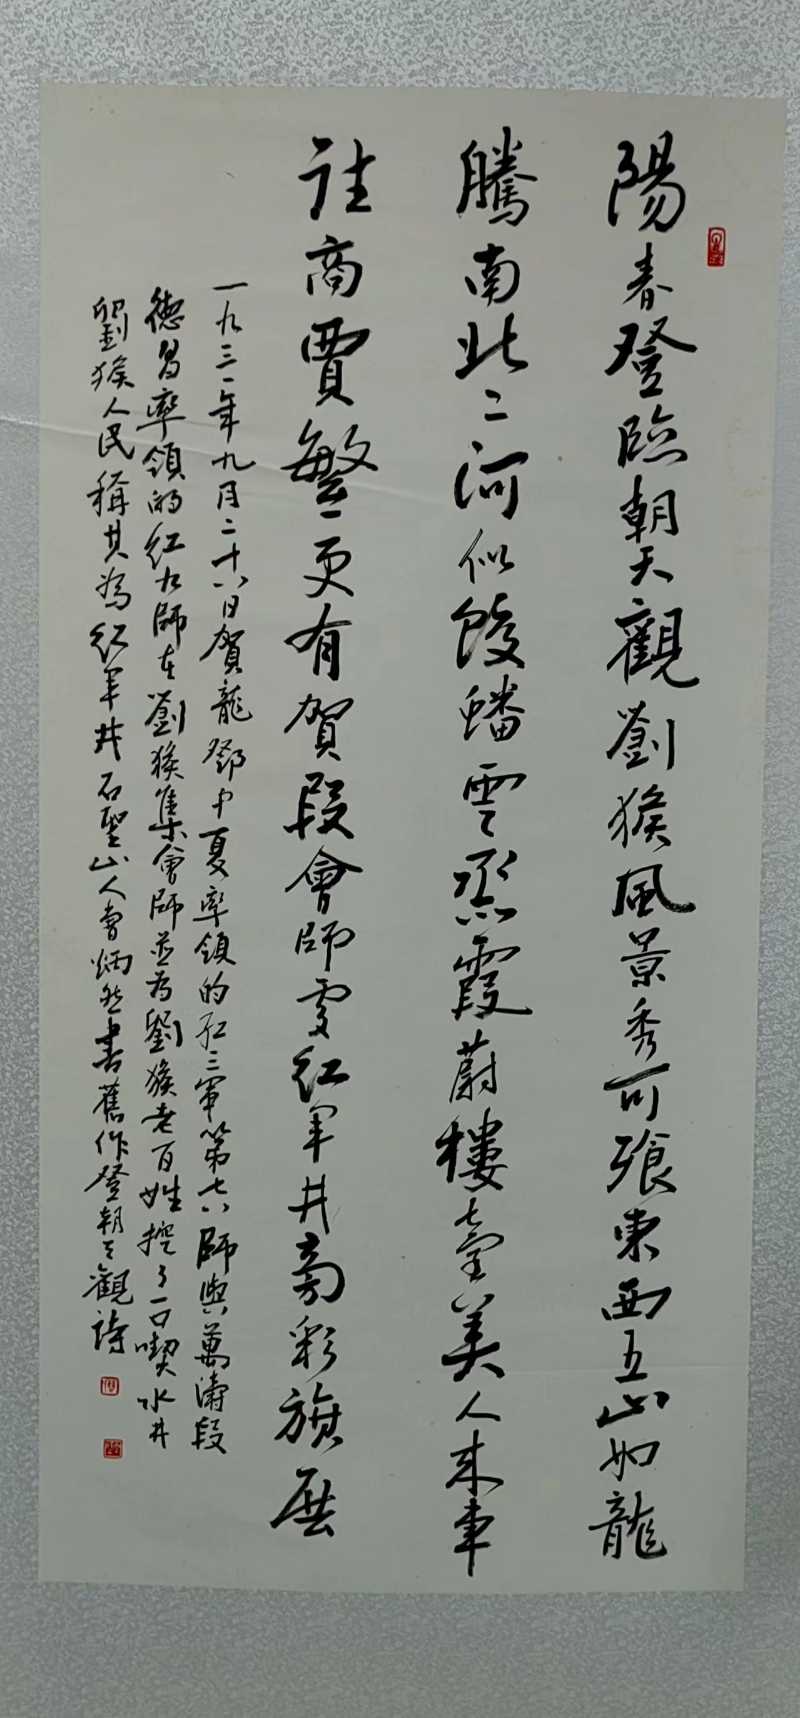 陽春登臨朝天觀劉猴風景秀可飡東西五山如龍
騰南北二河似餃蟠雲蒸霞蔚樓臺美人來車
往商賈繁更有賀段會師處紅軍井旁彩旗展
一九三一年九月二十八日賀龍鄧中夏率領的紅三軍第七八師與萬濤段
德昌率領的紅九師在劉猴集會師並為劉猴老百姓挖了一口喫水井
劉猴人民稱其為紅軍井石聖山人曹炳 書舊作登朝天觀詩